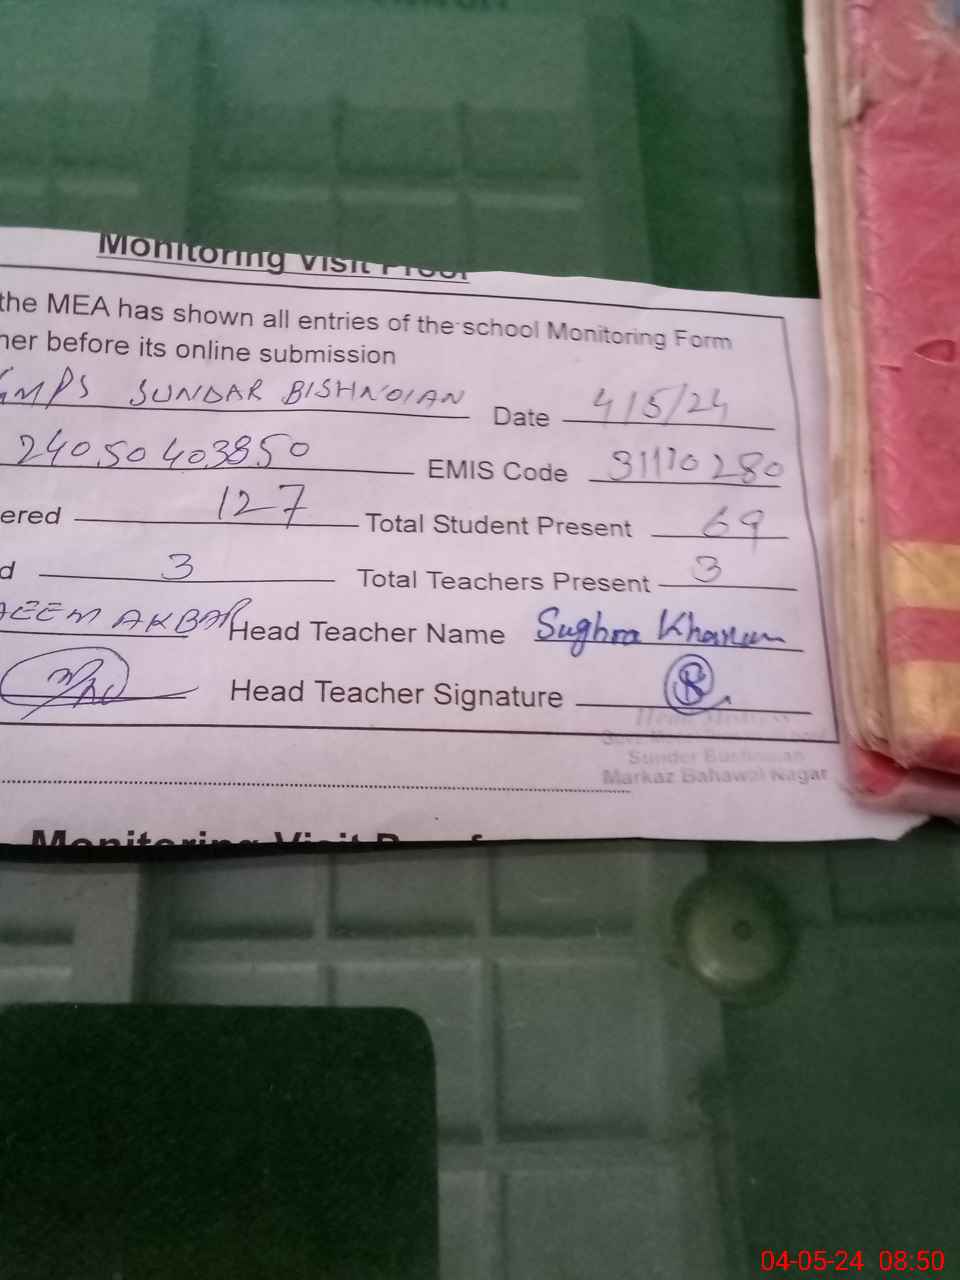 Monitoring Visit Proof
the MEA has shown all entries of the school Monitoring Form
her before its online submission
GMPS SUNDAR BISHNOIAN Date 4/5/24
24050403850 EMIS Code 31110280
ered 127 Total Student Present 69
d 3 Total Teachers Present 3
AEEM AKBAR Head Teacher Name Sughra Khanum
Head Teacher Signature
Markaz Bahawal Nagar
Monitoring Visit Proof
04-05-24 08:50